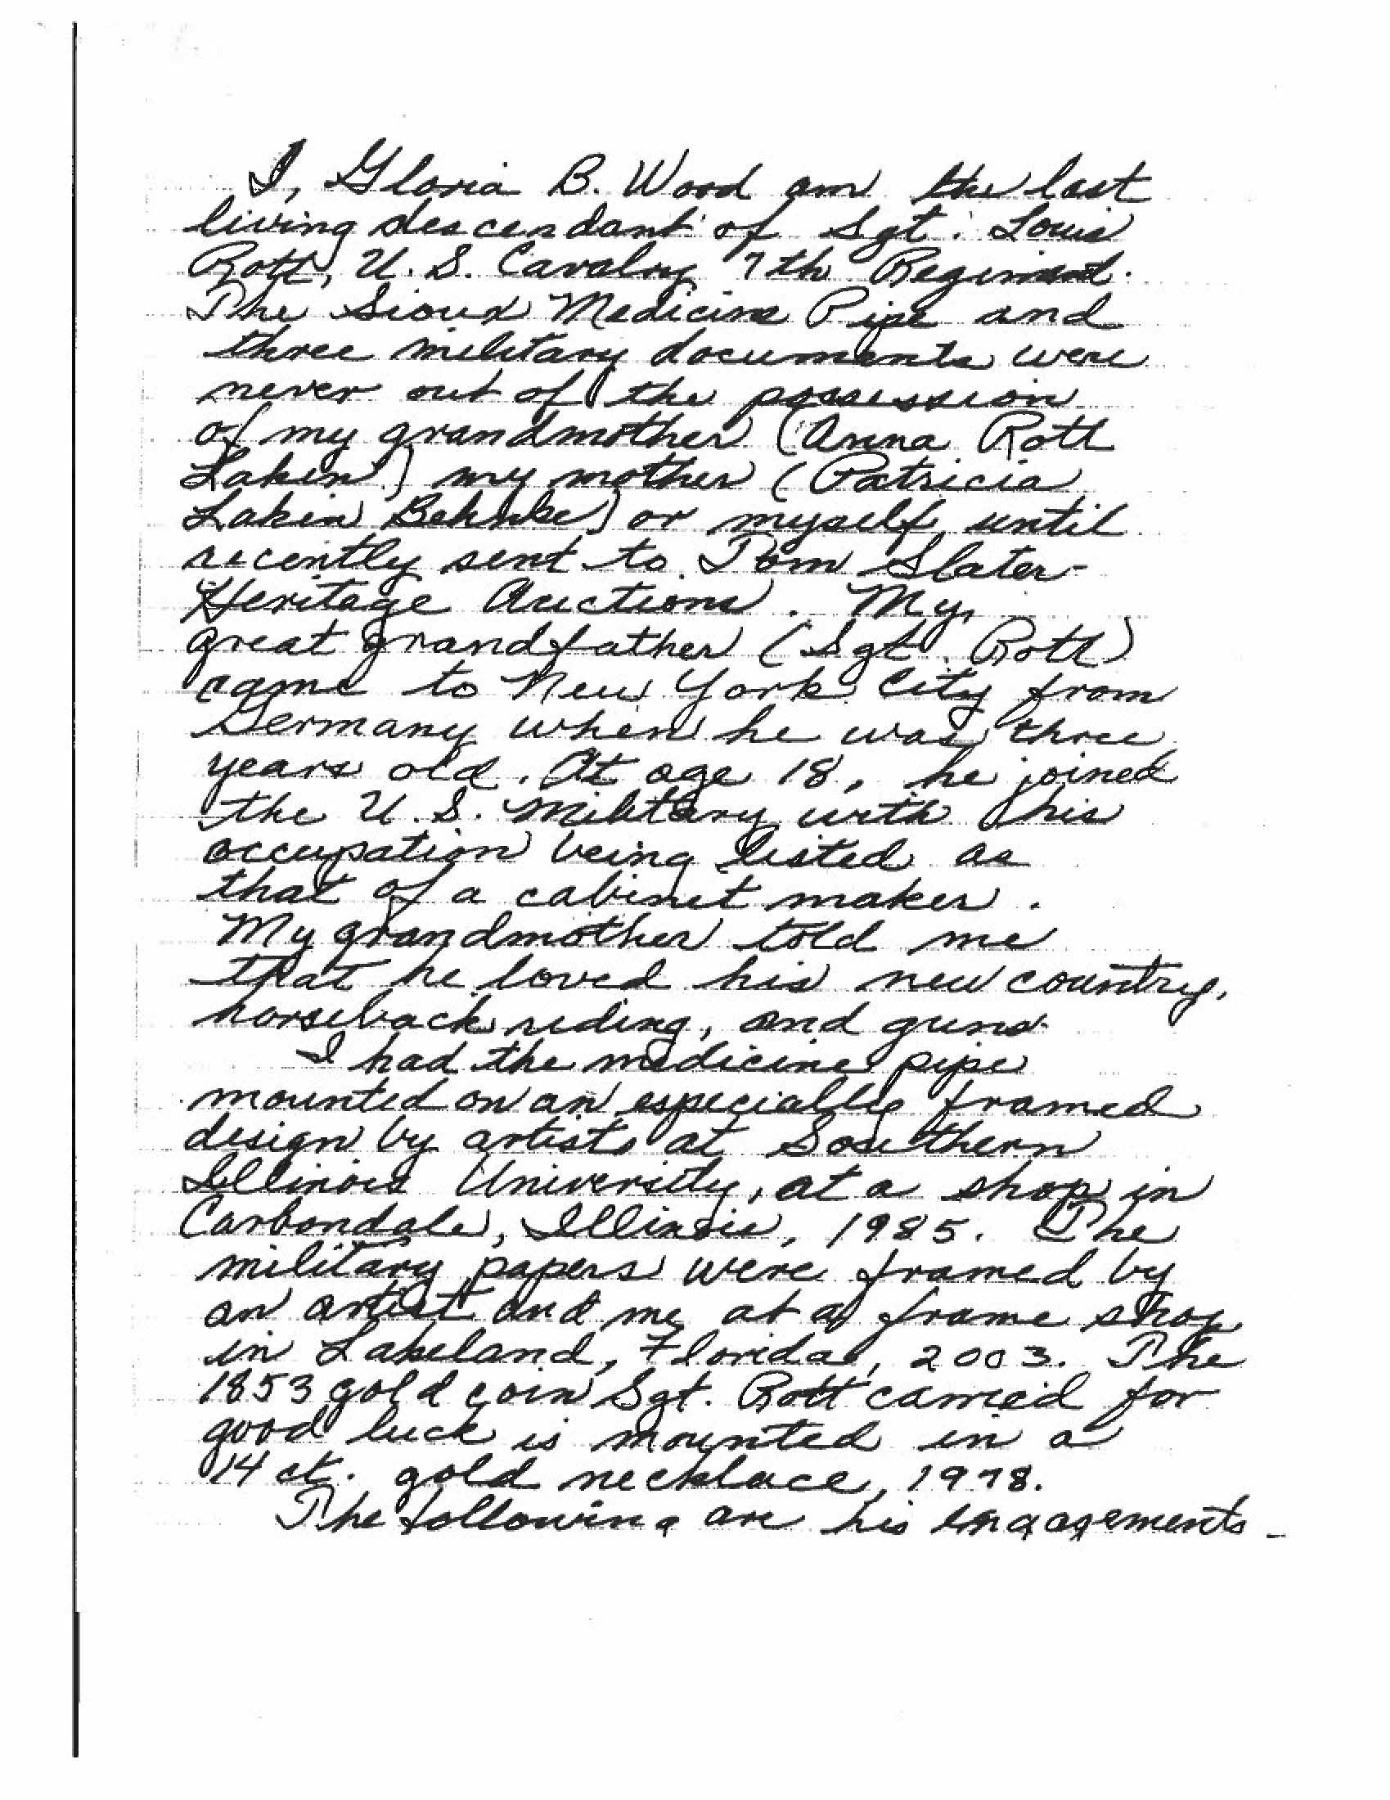 I, Gloria B. Wood am the last
living descendant of Sgt. Louis
Rott, U.S. Cavalry 7th Regiment.
The Sioux Medicine Pipe and
three military documents were
never out of the possession
of my grandmother (Anna Rott
Lakin) my mother (Patricia
Lakin Behnke) or myself until
recently sent to Tom Slater-
Heritage Auctions. My
great grandfather (Sgt. Rott)
came to New York City from
Germany when he was three
years old. At age 18, he joined
the U.S. Military with his
occupation being listed as
that of a cabinet maker.
My grandmother told me
that he loved his new country,
horseback riding, and guns.
I had the medicine pipe
mounted on an especially framed
design by artists at Southern
Illinois University, at a shop in
Carbondale, Illinois, 1985. The
military papers were framed by
an artist and me at a frame shop
in Lakeland, Florida, 2003. The
1853 gold coin Sgt. Rott carried for
good luck is mounted in a
14 ct. gold necklace, 1978.
The following are his engagements -